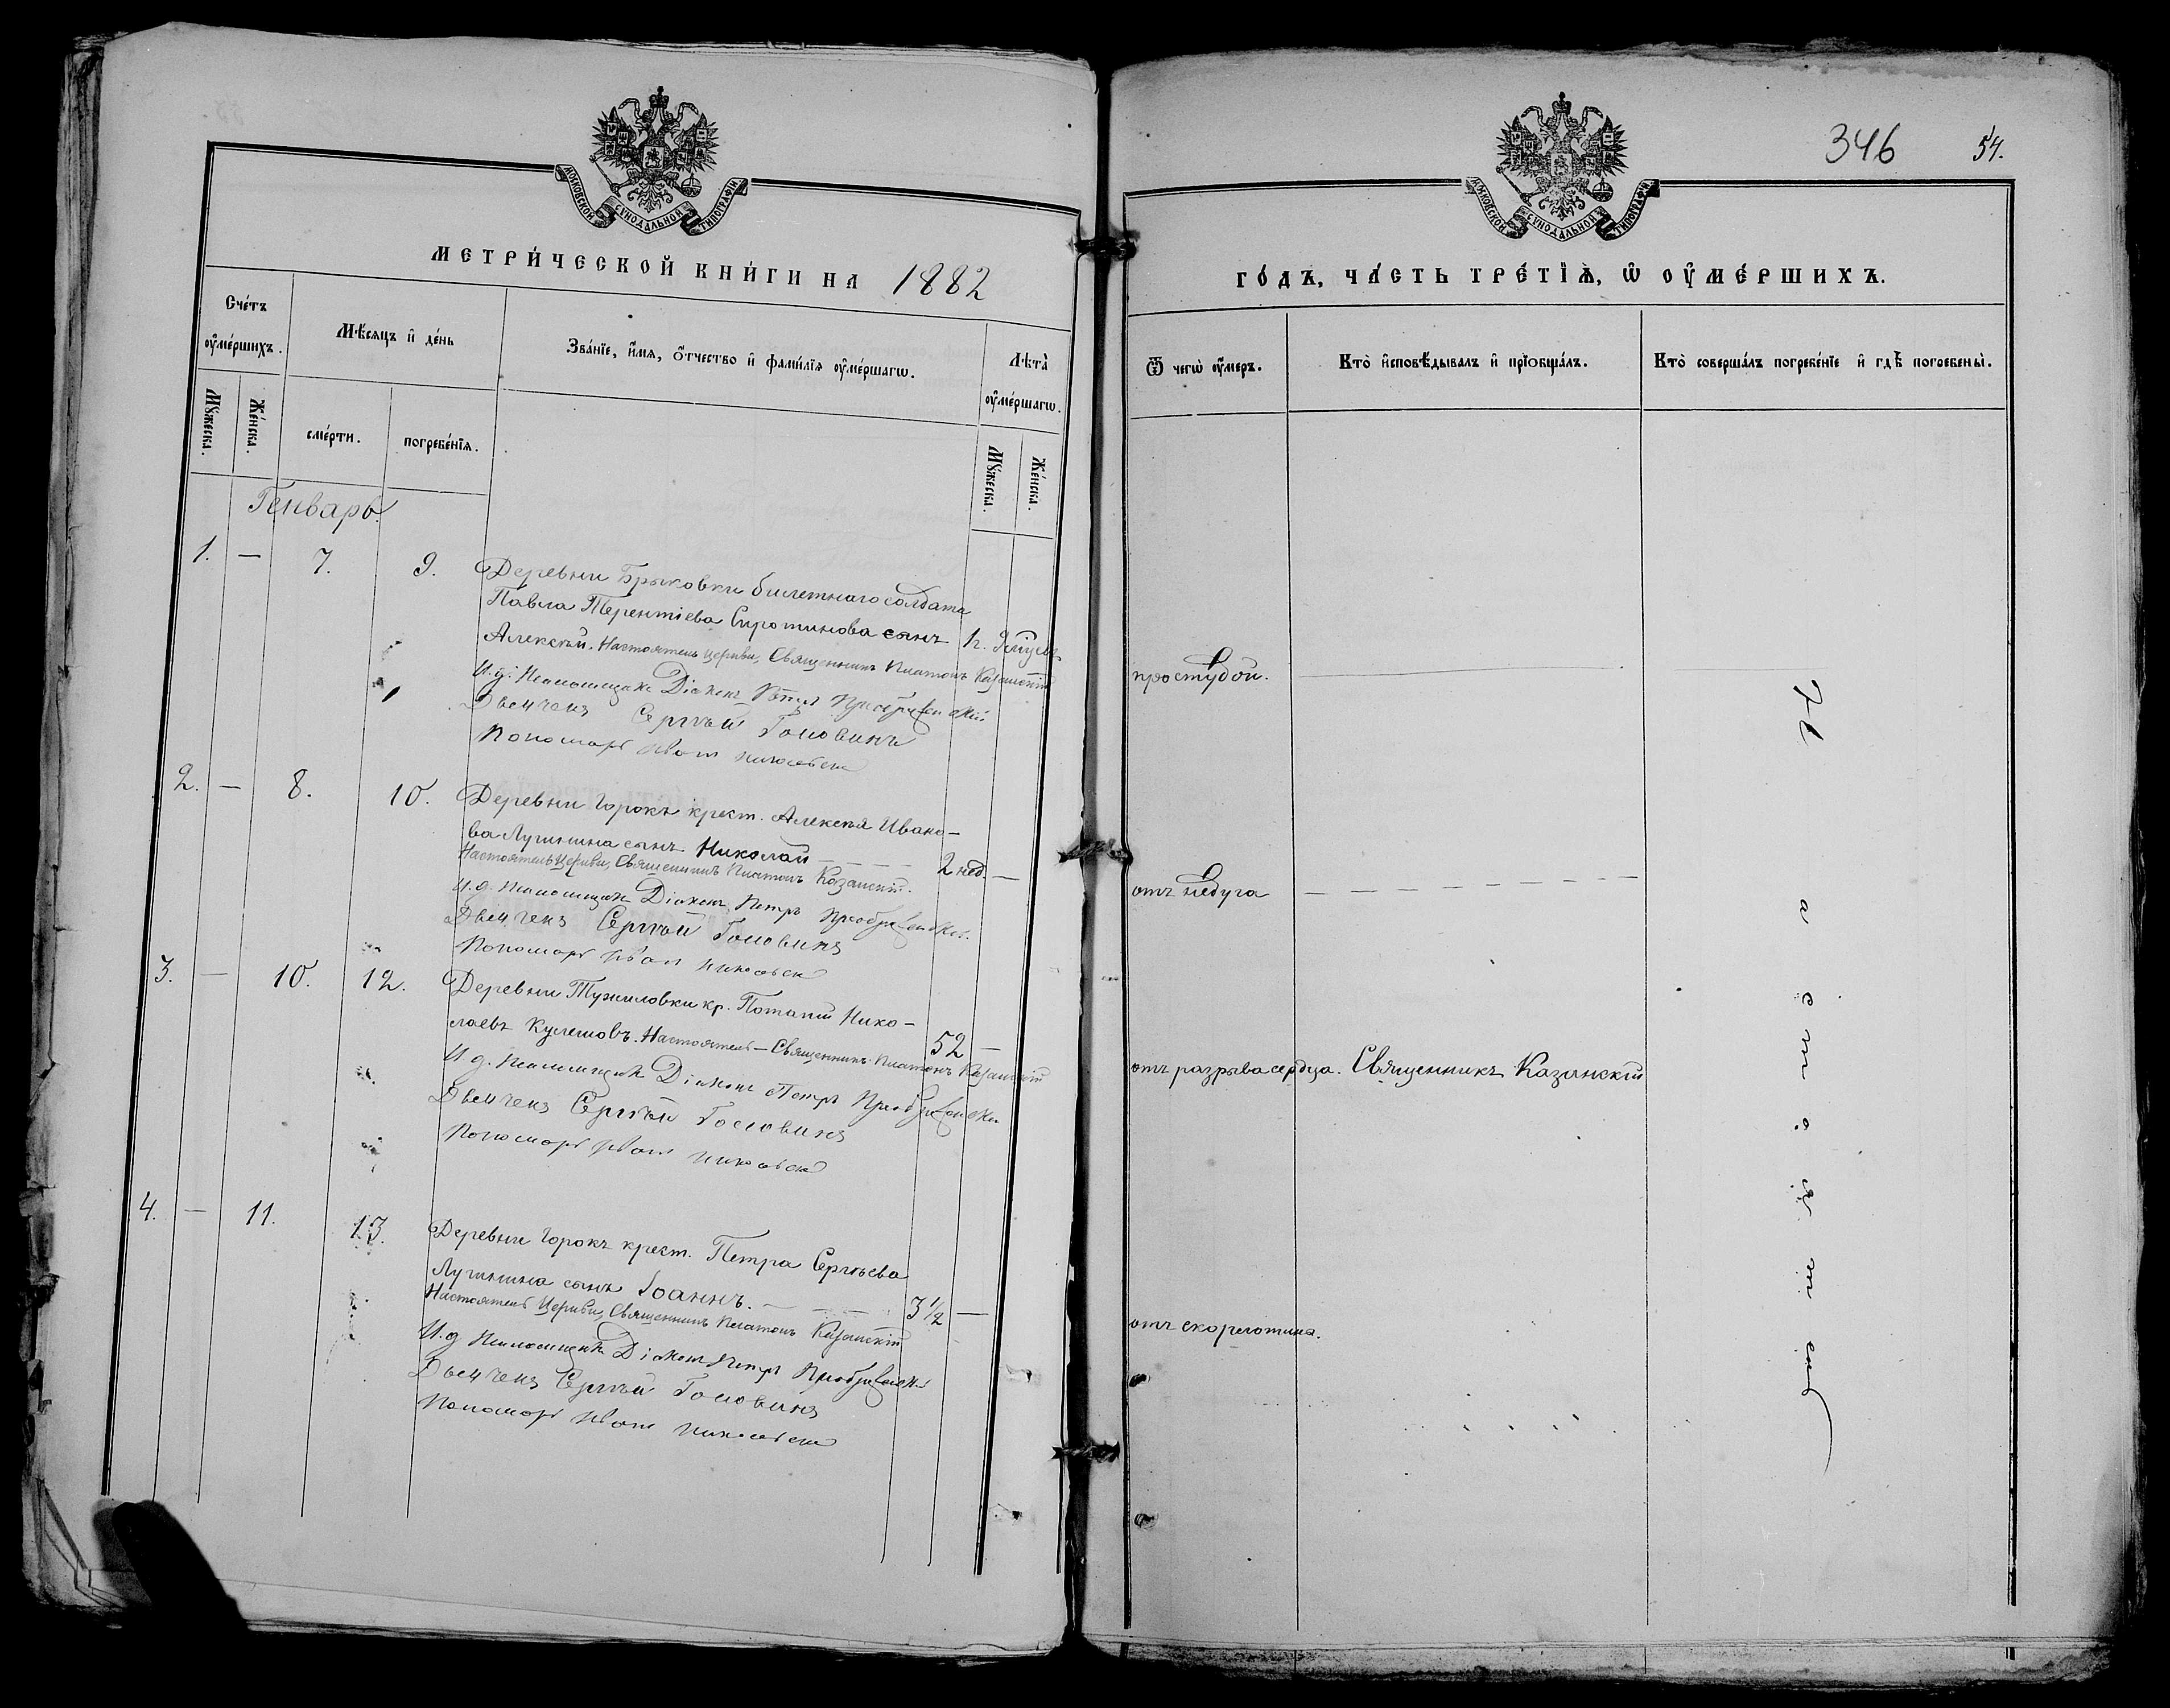 МОСКОВСКОЙ СѴНОДАЛЬНОЙ ТИПОГРАФІИ
МЕТРИ́ЧЕСКОЙ КНИ́ГИ НА 1882
Сче́тъ оу҆ме́ршихъ.
Мѣ́сяцъ и҆ де́нь
Зва́нїе, и҆́мя, ѻ҆́тчество и҆ фами́лїя оу҆ме́ршагѡ.
Лѣ́та оу҆ме́ршагѡ.
Мꙋ́жеска.
Же́нска.
сме́рти.
погребе́нїя.
Мꙋ́жеска.
Же́нска.
Генварь.
1. — 7. 9. Деревни Брыковки билетнаго солдата
Павла Терентіева Сиротинова сынъ 1 г.
Алексѣй. Настоятель церкви, Священникъ Платонъ Казанскій
И. д. Псаломщика Діаконъ Петръ Преображенскій
Дьячекъ Сергѣй Головинъ
Пономарь Иванъ
2. — 8. 10. Деревни Горокъ крест. Алексѣя Ивано-
ва Лучинина сынъ Николай 2 нед. —
Настоятель Церкви, Священникъ Платонъ Казанскій.
И. д. Псаломщика Діаконъ Петръ Преображенскій
Дьячекъ Сергѣй Головинъ
Пономарь Иванъ
3. — 10. 12. Деревни Тужиловки кр. Потапій Нико-
лаевъ Кулешовъ. 52 —
Настоятель — Священникъ Платонъ Казанскій
И. д. Псаломщика Діаконъ Петръ Преображенскій
Дьячекъ Сергѣй Головинъ
Пономарь Иванъ
4. — 11. 13. Деревни Горокъ крест. Петра Сергѣева
Лучинина сынъ Іоаннъ. 3 1/2 —
Настоятель Церкви, Священникъ Платонъ Казанскій
И. д. Псаломщика Діаконъ Петръ Преображенскій
Дьячекъ Сергѣй Головинъ
Пономарь Иванъ
346 54.
МОСКОВСКОЙ СѴНОДАЛЬНОЙ ТИПОГРАФІИ
ГО́ДЪ, ЧА́СТЬ ТРЕ́ТЇѦ, Ѡ҆ ОУ҆МЕ́РШИХЪ.
Ѿ чегѡ̀ оу҆́меръ.
Кто̀ и҆сповѣ́дывалъ и҆ прїобща́лъ.
Кто̀ соверша́лъ погребе́нїе и҆ гдѣ̀ погребены̀.
простудой.
отъ недуга
отъ разрыва сердца. Священникъ Казанскій
отъ скоротина.